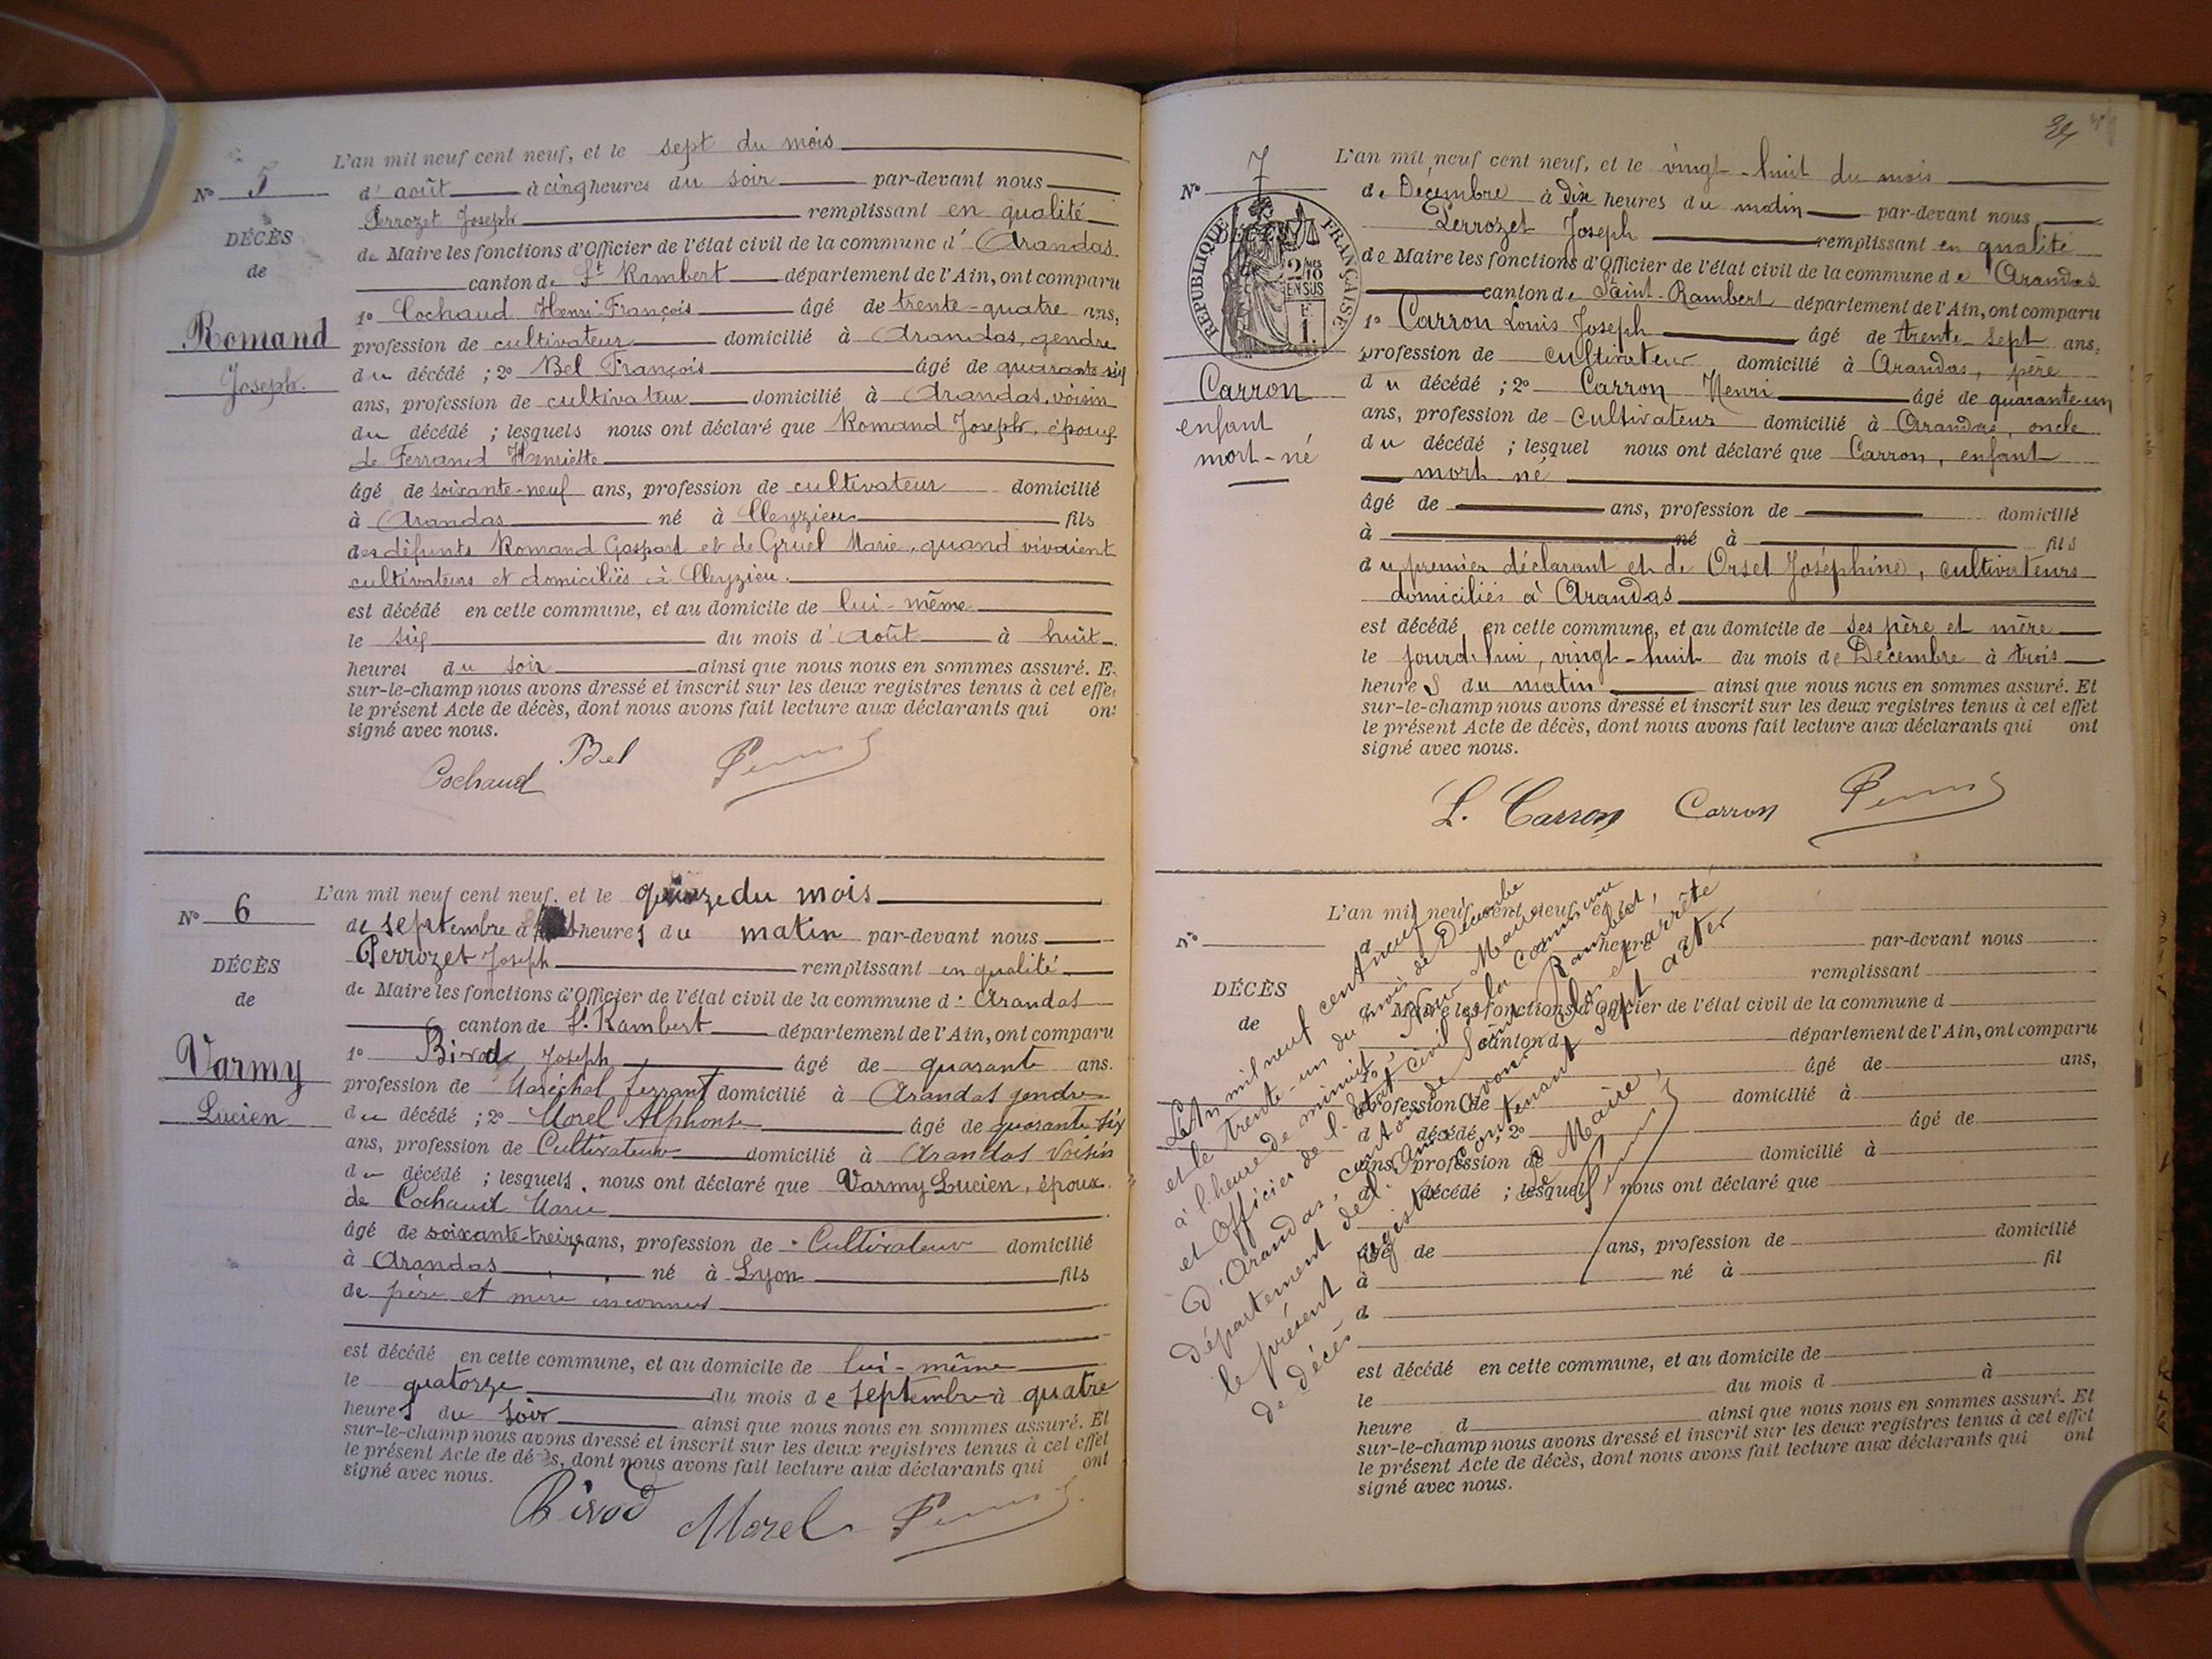 N° 5
DÉCÈS
de
Romand
Joseph.
L'an mil neuf cent neuf, et le sept du mois
d' août à cinq heures du soir par-devant nous
Perrozet Joseph remplissant en qualité
de Maire les fonctions d'Officier de l'état civil de la commune d' Arandas
canton de St Rambert département de l'Ain, ont comparu
1° Cochaud Henri-François âgé de trente-quatre ans,
profession de cultivateur domicilié à Arandas, gendre
du décédé ; 2° Bel François âgé de quarante-six
ans, profession de cultivateur domicilié à Arandas, voisin
du décédé ; lesquels nous ont déclaré que Romand Joseph, époux
de Ferrand Henriette
âgé de soixante-neuf ans, profession de cultivateur domicilié
à Arandas né à Cleyzieu fils
des défunts Romand Gaspard et de Gruel Marie, quand vivaient
cultivateurs et domiciliés à Cleyzieu.
est décédé en cette commune, et au domicile de lui-même
le six du mois d' août à huit
heures du soir ainsi que nous nous en sommes assuré. E
sur-le-champ nous avons dressé et inscrit sur les deux registres tenus à cet effet
le présent Acte de décès, dont nous avons fait lecture aux déclarants qui ont
signé avec nous.
Cochaud Bel
N° 6
DÉCÈS
de
Varmy
Lucien
L'an mil neuf cent neuf, et le quinze du mois
de septembre à heures du matin par-devant nous
Perrozet Joseph remplissant en qualité
de Maire les fonctions d'Officier de l'état civil de la commune d' Arandas
canton de St Rambert département de l'Ain, ont comparu
1° Birod Joseph âgé de quarante ans.
profession de Maréchal ferrant domicilié à Arandas gendre
du décédé ; 2° Morel Alphonse âgé de quarante-six
ans, profession de Cultivateur domicilié à Arandas Voisin
du décédé ; lesquels nous ont déclaré que Varmy Lucien, époux
de Cochaud Marie
âgé de soixante-treize ans, profession de Cultivateur domicilié
à Arandas né à Lyon fils
de père et mère inconnus
est décédé en cette commune, et au domicile de lui-même
le quatorze du mois de septembre à quatre
heures du soir ainsi que nous nous en sommes assuré. Et
sur-le-champ nous avons dressé et inscrit sur les deux registres tenus à cet effet
le présent Acte de décès, dont nous avons fait lecture aux déclarants qui ont
signé avec nous.
Birod Morel
N° 7
DÉCÈS
RÉPUBLIQUE FRANÇAISE
2/10 MES
EN SUS
F.
1.
Carron
enfant
mort-né
L'an mil neuf cent neuf, et le vingt-huit du mois
de Décembre à dix heures du matin par-devant nous
Perrozet Joseph remplissant en qualité
de Maire les fonctions d'Officier de l'état civil de la commune de Arandas
canton de Saint-Rambert département de l'Ain, ont comparu
1° Carron Louis Joseph âgé de trente-sept ans,
profession de cultivateur domicilié à Arandas, père
du décédé ; 2° Carron Henri âgé de quarante-un
ans, profession de Cultivateur domicilié à Arandas, oncle
du décédé ; lesquel nous ont déclaré que Carron, enfant
mort-né
âgé de ans, profession de domicilié
à né à fils
du premier déclarant et de Orset Joséphine, cultivateurs
domiciliés à Arandas
est décédé en cette commune, et au domicile de ses père et mère
le jourd'hui, vingt-huit du mois de Décembre à trois
heures du matin ainsi que nous nous en sommes assuré. Et
sur-le-champ nous avons dressé et inscrit sur les deux registres tenus à cet effet
le présent Acte de décès, dont nous avons fait lecture aux déclarants qui ont
signé avec nous.
L. Carron Carron
N°
DÉCÈS
de
L'an mil neuf cent neuf, et le
d à heure d par-devant nous
remplissant
d Maire les fonctions d'Officier de l'état civil de la commune d
canton d département de l'Ain, ont comparu
1° âgé de ans,
profession de domicilié à
d décédé ; 2° âgé de
ans, profession de domicilié à
d décédé ; lesquel nous ont déclaré que
âgé de ans, profession de domicilié
à né à fil
d
est décédé en cette commune, et au domicile de
le du mois d à
heure d ainsi que nous nous en sommes assuré. Et
sur-le-champ nous avons dressé et inscrit sur les deux registres tenus à cet effet
le présent Acte de décès, dont nous avons fait lecture aux déclarants qui ont
signé avec nous.
L'An mil neuf cent neuf
et le trente-un du mois de Décembre
à l'heure de minuit, Nous Maire
et Officier de l'état civil de la Commune
d'Arandas, canton de Saint Rambert,
département de l'Ain, avons clos et arrêté
le présent registre contenant sept actes
de décès
Le Maire,